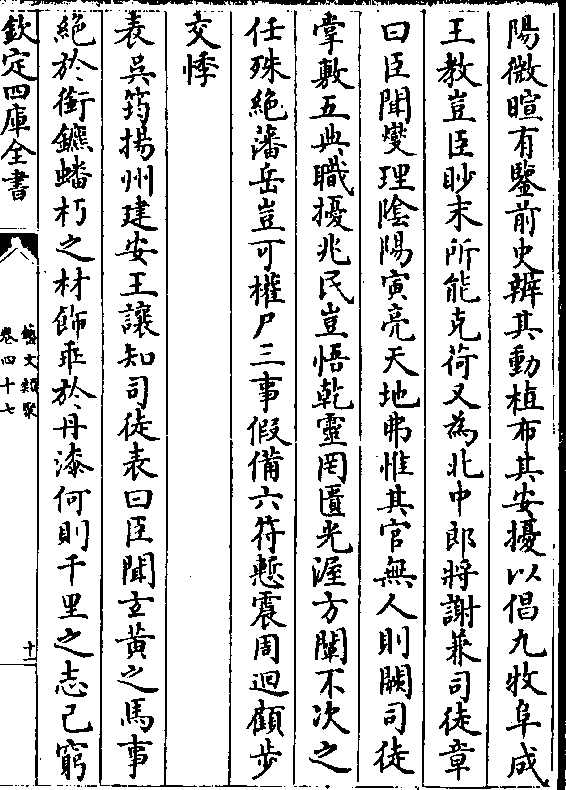 陽微暄有鑒前史辨其動植布其安擾以倡九牧阜成
王教豈臣眇末所能克荷又為北中郎將謝兼司徒章
曰臣聞燮理陰陽寅亮天地弗惟其官無人則闕司徒
掌敷五典職擾兆民豈悟乾靈罔匱光渥方闡不次之
任殊絶藩岳豈可權尸三事假備六符慙震周迴顧步
交悸
表吳筠揚州建安王讓知司徒表曰臣聞玄黄之馬事
絶於銜鑣蟠朽之材飾乖於丹漆何則千里之志已窮
欽定四庫全書
藝文類聚
卷四十七
十一